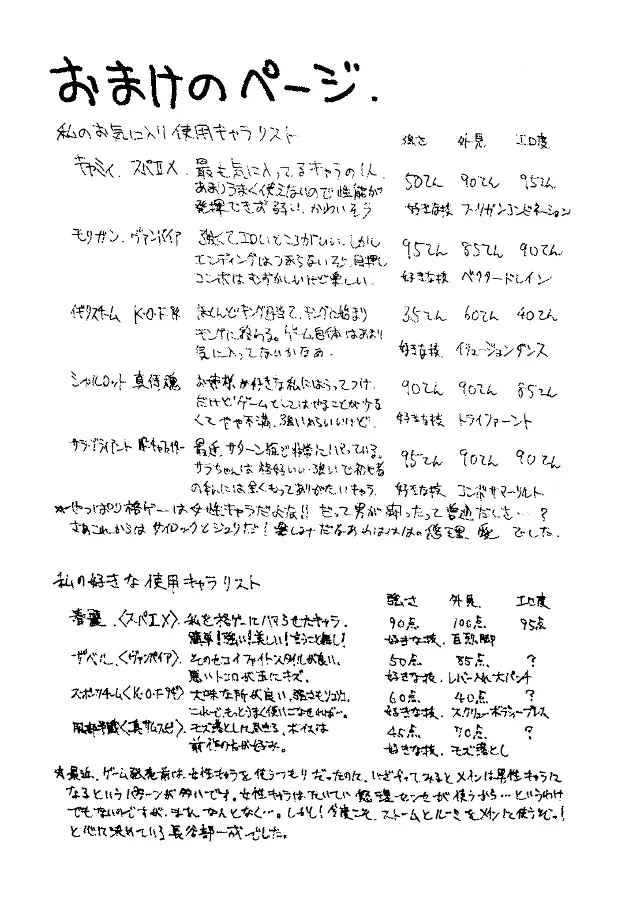 おまけのページ.
私のお気に入り使用キャラリスト 強さ 外見 エロ度
キャミィ. スパⅡX. 最も気に入ってるキャラの1人
あまりうまく使えないので性能が
発揮できず弱い. かわいそう
50てん 90てん 95てん
好きな技 フーリガンコンビネーション
モリガン. ヴァンパイア 強くてエロいところがいい. しかし
エンディングはつまらないぞ. 目押し
コンボはむずかしいけど楽しい.
95てん 85てん 90てん
好きな技 ベクタードレイン
イギリスチーム K・O・F ほとんどキング目当て. キングに始まり
キングに終わる。ゲーム自体はあまり
気に入ってないかなあ.
35てん 60てん 40てん
好きな技. イリュージョンダンス
シャルロット 真侍魂 お客様が好きな私にはうってつけ.
だけどゲームとしてはやることが少な
くてやや不満. 強いからいいけど.
90てん 90てん 85てん
好きな技 トライファーント
サラ・ブライアント 最近. サターン版で非常にハマっている。
サラちゃんは格好いい・強いで初心者
の私には全くもってありがたいキャラ.
95てん 90てん 90てん
好きな技 コンボサマーソルト
☆やっぱり格ゲーは女性キャラだよな!! だって男が闘ったって普通だしさ…?
さあこれからはサイロックとジュリだ! 楽しみだなあわははは。修理 でした.
私の好きな使用キャラリスト 強さ 外見. エロ度
春麗.〈スパⅡX〉. 私を格ゲーにハマらせたキャラ.
簡単! 強い! 美しい! 言うこと無し!
90点 100点 95点
好きな技. 百烈脚
ザベル.〈ヴァンパイア〉. そのセコイファイトスタイルが良い.
悪いトコロが玉にキズ.
50点 85点. ?
好きな技. レバー入れ大パンチ
スポーツチーム〈K・O・F〉. 大味な所が良い. 強さもソコソコ.
これで、もっとうまく使いこなせれば….
60点. 40点. ?
好きな技. スクリューボディープレス
モズ落としに尽きる. ボイスは
前作の方が好み.
45点. 70点. ?
好きな技. モズ落とし
☆最近、ゲーム発売前は女性キャラを使うつもりだったのに、いざやってみるとメインは男性キャラに
なるというパターンが多いです。女性キャラはたいてい修理センセが使うから…というわけ
でもないのですが. まぁ、なんとなく…。しかし! 今度こそ、ストームとルーミをメインに使うぞっ!
と心に決めている長谷部一成でした。